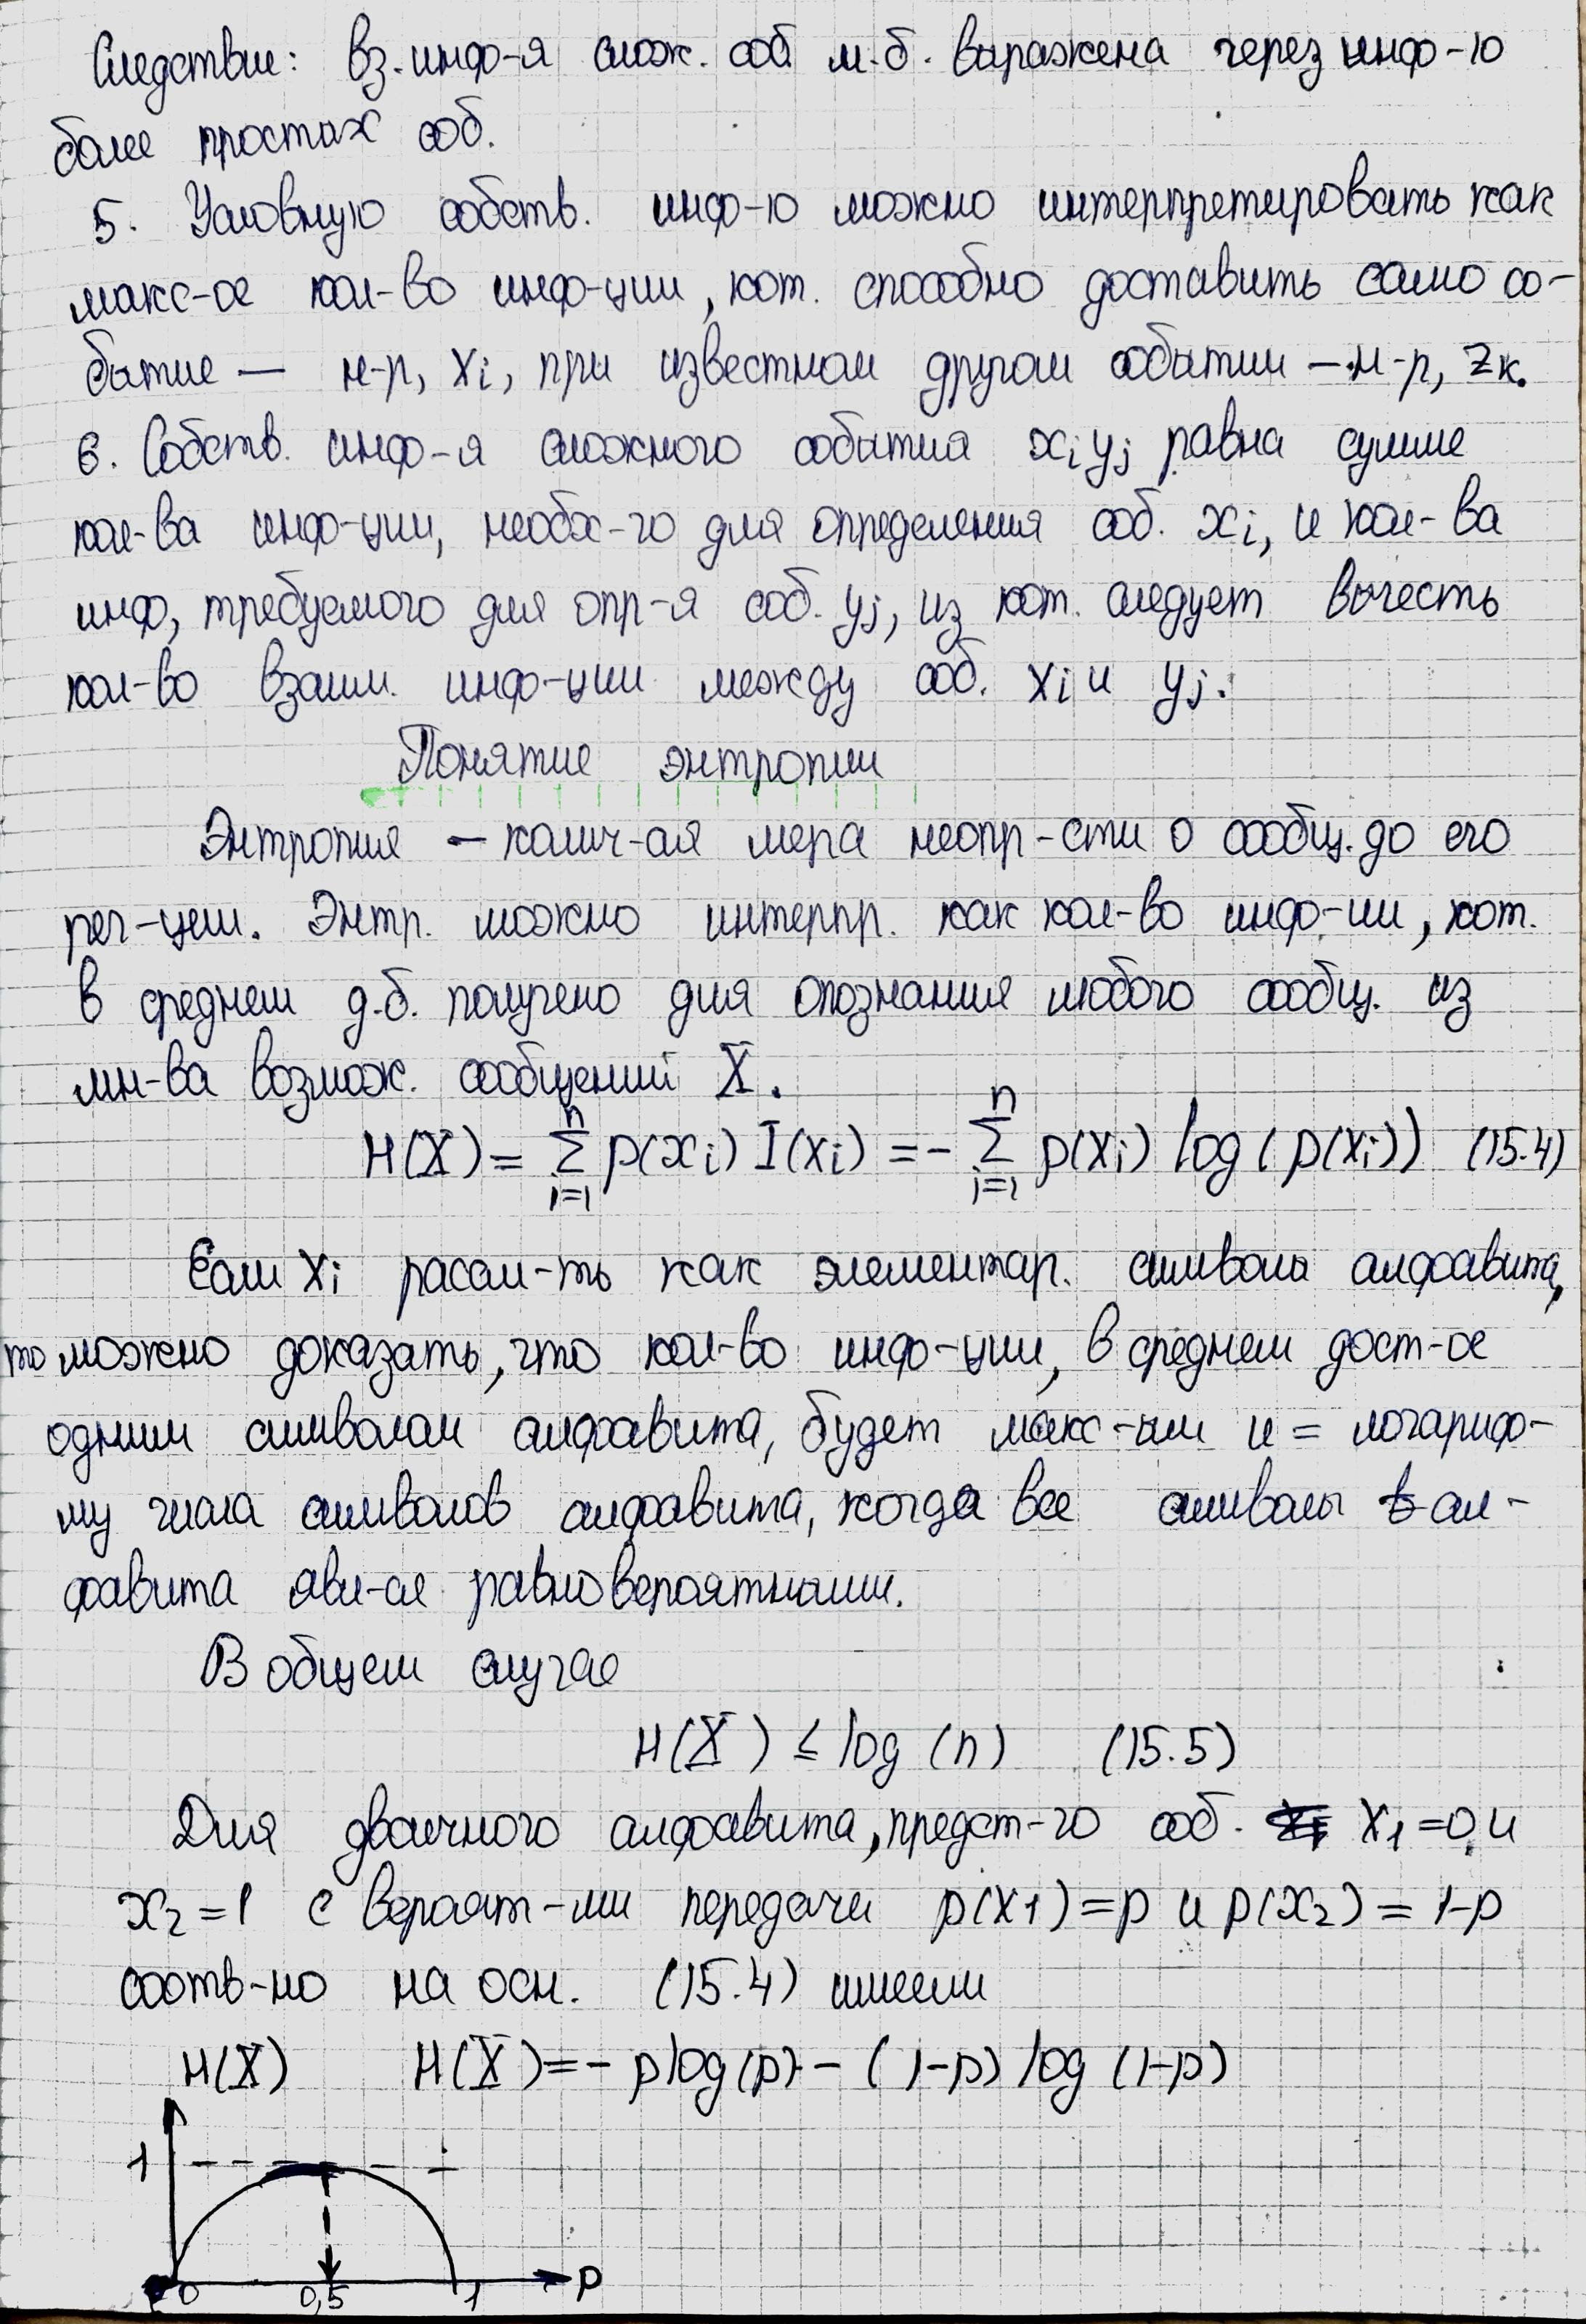 Следствие: вз. инф-я слож. соб м.б. выражена через инф-ю
более простых соб.
5. Условную собств. инф-ю можно интерпретировать как
макс-ое кол-во инф-ции, кот. способно доставить само со-
бытие — н-р, xi, при известном другом событии — н-р, zк.
6. Собств. инф-я сложного события xiyj равна сумме
кол-ва инф-ции, необх-го для определения соб. xi, и кол-ва
инф, требуемого для опр-я соб. yj, из кот. следует вычесть
кол-во взаим. инф-ции между соб. xi и yj.
Понятие энтропии
Энтропия — колич-ая мера неопр-сти о сообщ. до его
рег-ции. Энтр. можно интерпр. как кол-во инф-ии, кот.
в среднем д.б. получено для опознания любого сообщ. из
мн-ва возмож. сообщений X.
H(X) = n Σ i=1 p(xi) I(xi) = - n Σ i=1 p(xi) log(p(xi)) (15.4)
Если xi рассм-ть как элементар. символы алфавита,
то можно доказать, что кол-во инф-ции, в среднем дост-ое
одним символом алфавита, будет макс-ым и = логариф-
му числа символов алфавита, когда все символы ал-
фавита явл-ся равновероятными.
В общем случае
H(X) ≤ log (n) (15.5)
Для двоичного алфавита, предст-го соб. x1=0 и
x2=1 с вероят-ми передачи p(x1)=p и p(x2)=1-p
соотв-но на осн. (15.4) имеем
H(X) H(X)=- plog(p) - (1-p) log (1-p)
1
0 0,5 1 p